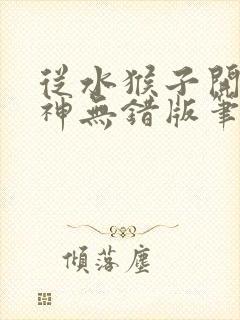 從水猴子開
神無錯版筆
傾落塵